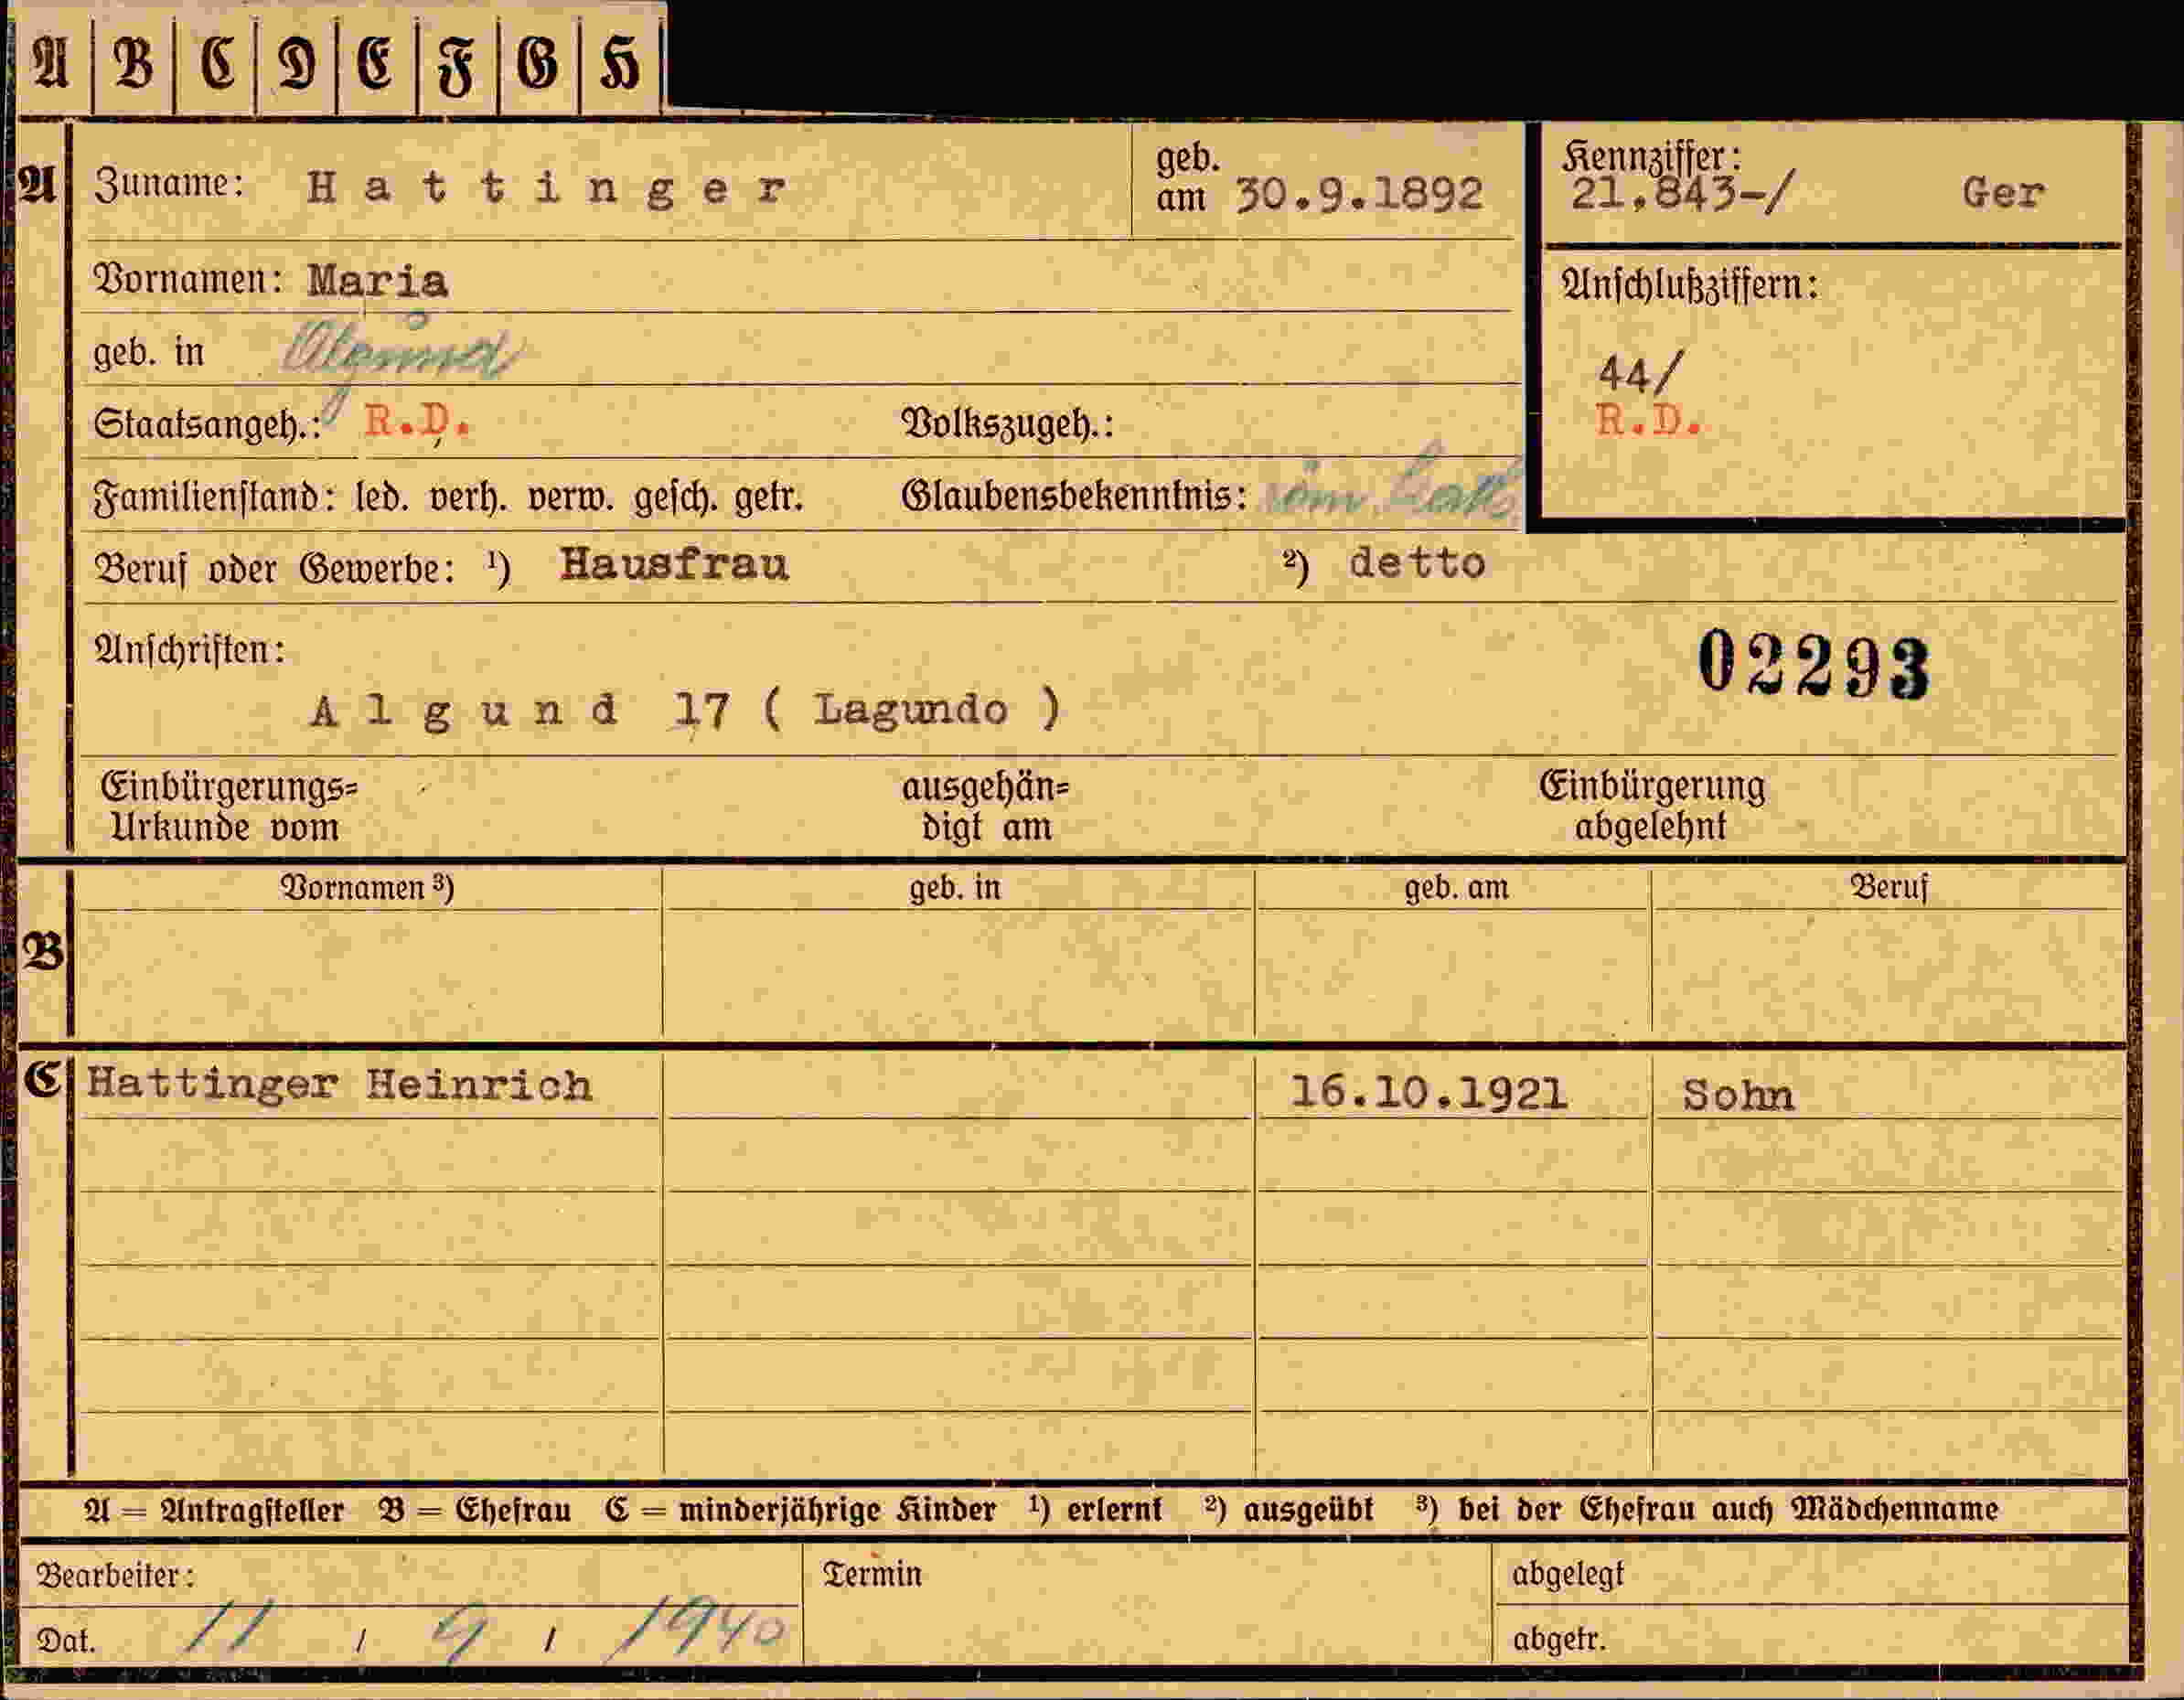 A B C D E F G H
A Zuname: Hattinger geb. am 30.9.1892 Kennziffer: 21.843-/ Ger
Vornamen: Maria
Anschlußziffern:
geb. in Algund
44/
Staatsangeh.: R.D. Volkszugeh.:
R.D.
Familienstand: led. verh. verw. gesch. getr. Glaubensbekenntnis: röm. kath
Beruf oder Gewerbe: ¹) Hausfrau ²) detto
Anschriften:
02293
Algund 17 ( Lagundo )
Einbürgerungs= ausgehän= Einbürgerung
Urkunde vom digt am abgelehnt
Vornamen ³) geb. in geb. am Beruf
B
C Hattinger Heinrich 16.10.1921 Sohn
A = Antragsteller B = Ehefrau C = minderjährige Kinder ¹) erlernt ²) ausgeübt ³) bei der Ehefrau auch Mädchenname
Bearbeiter: Termin abgelegt
Dat. 11 / 9 / 1940 abgetr.